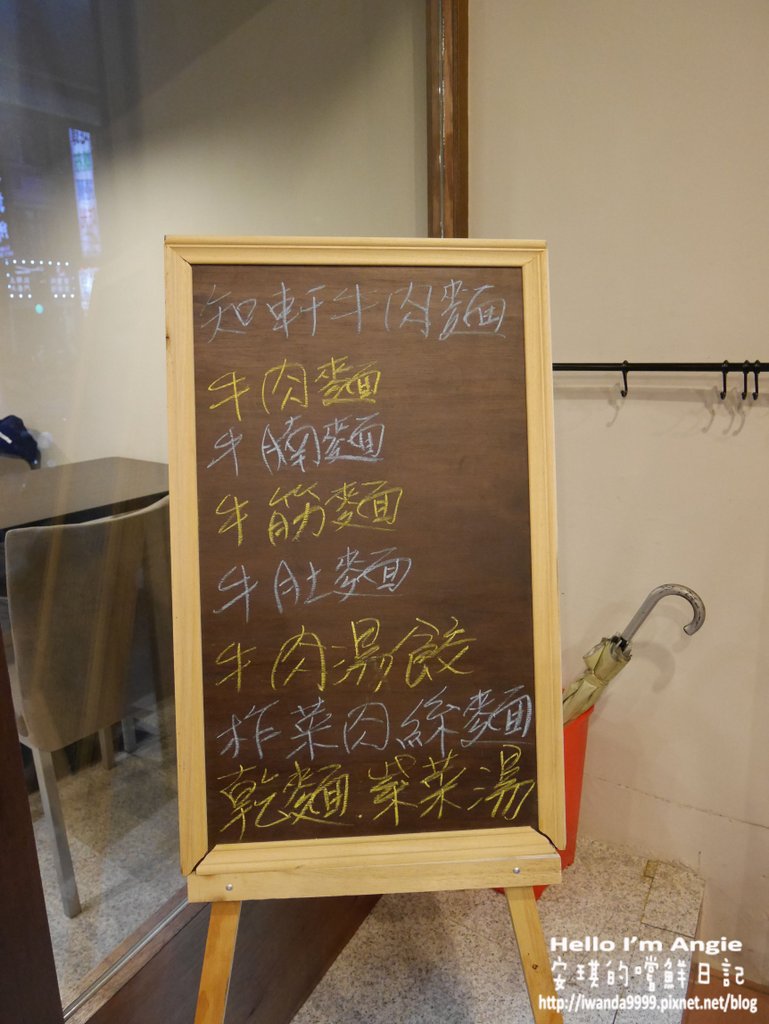 知軒牛肉麵
牛肉麵
牛腩麵
牛筋麵
牛肚麵
牛肉湯餃
榨菜肉絲麵
乾麵.紫菜湯
Hello I'm Angie
安琪的嚐鮮日記
http://iwanda9999.pixnet.net/blog